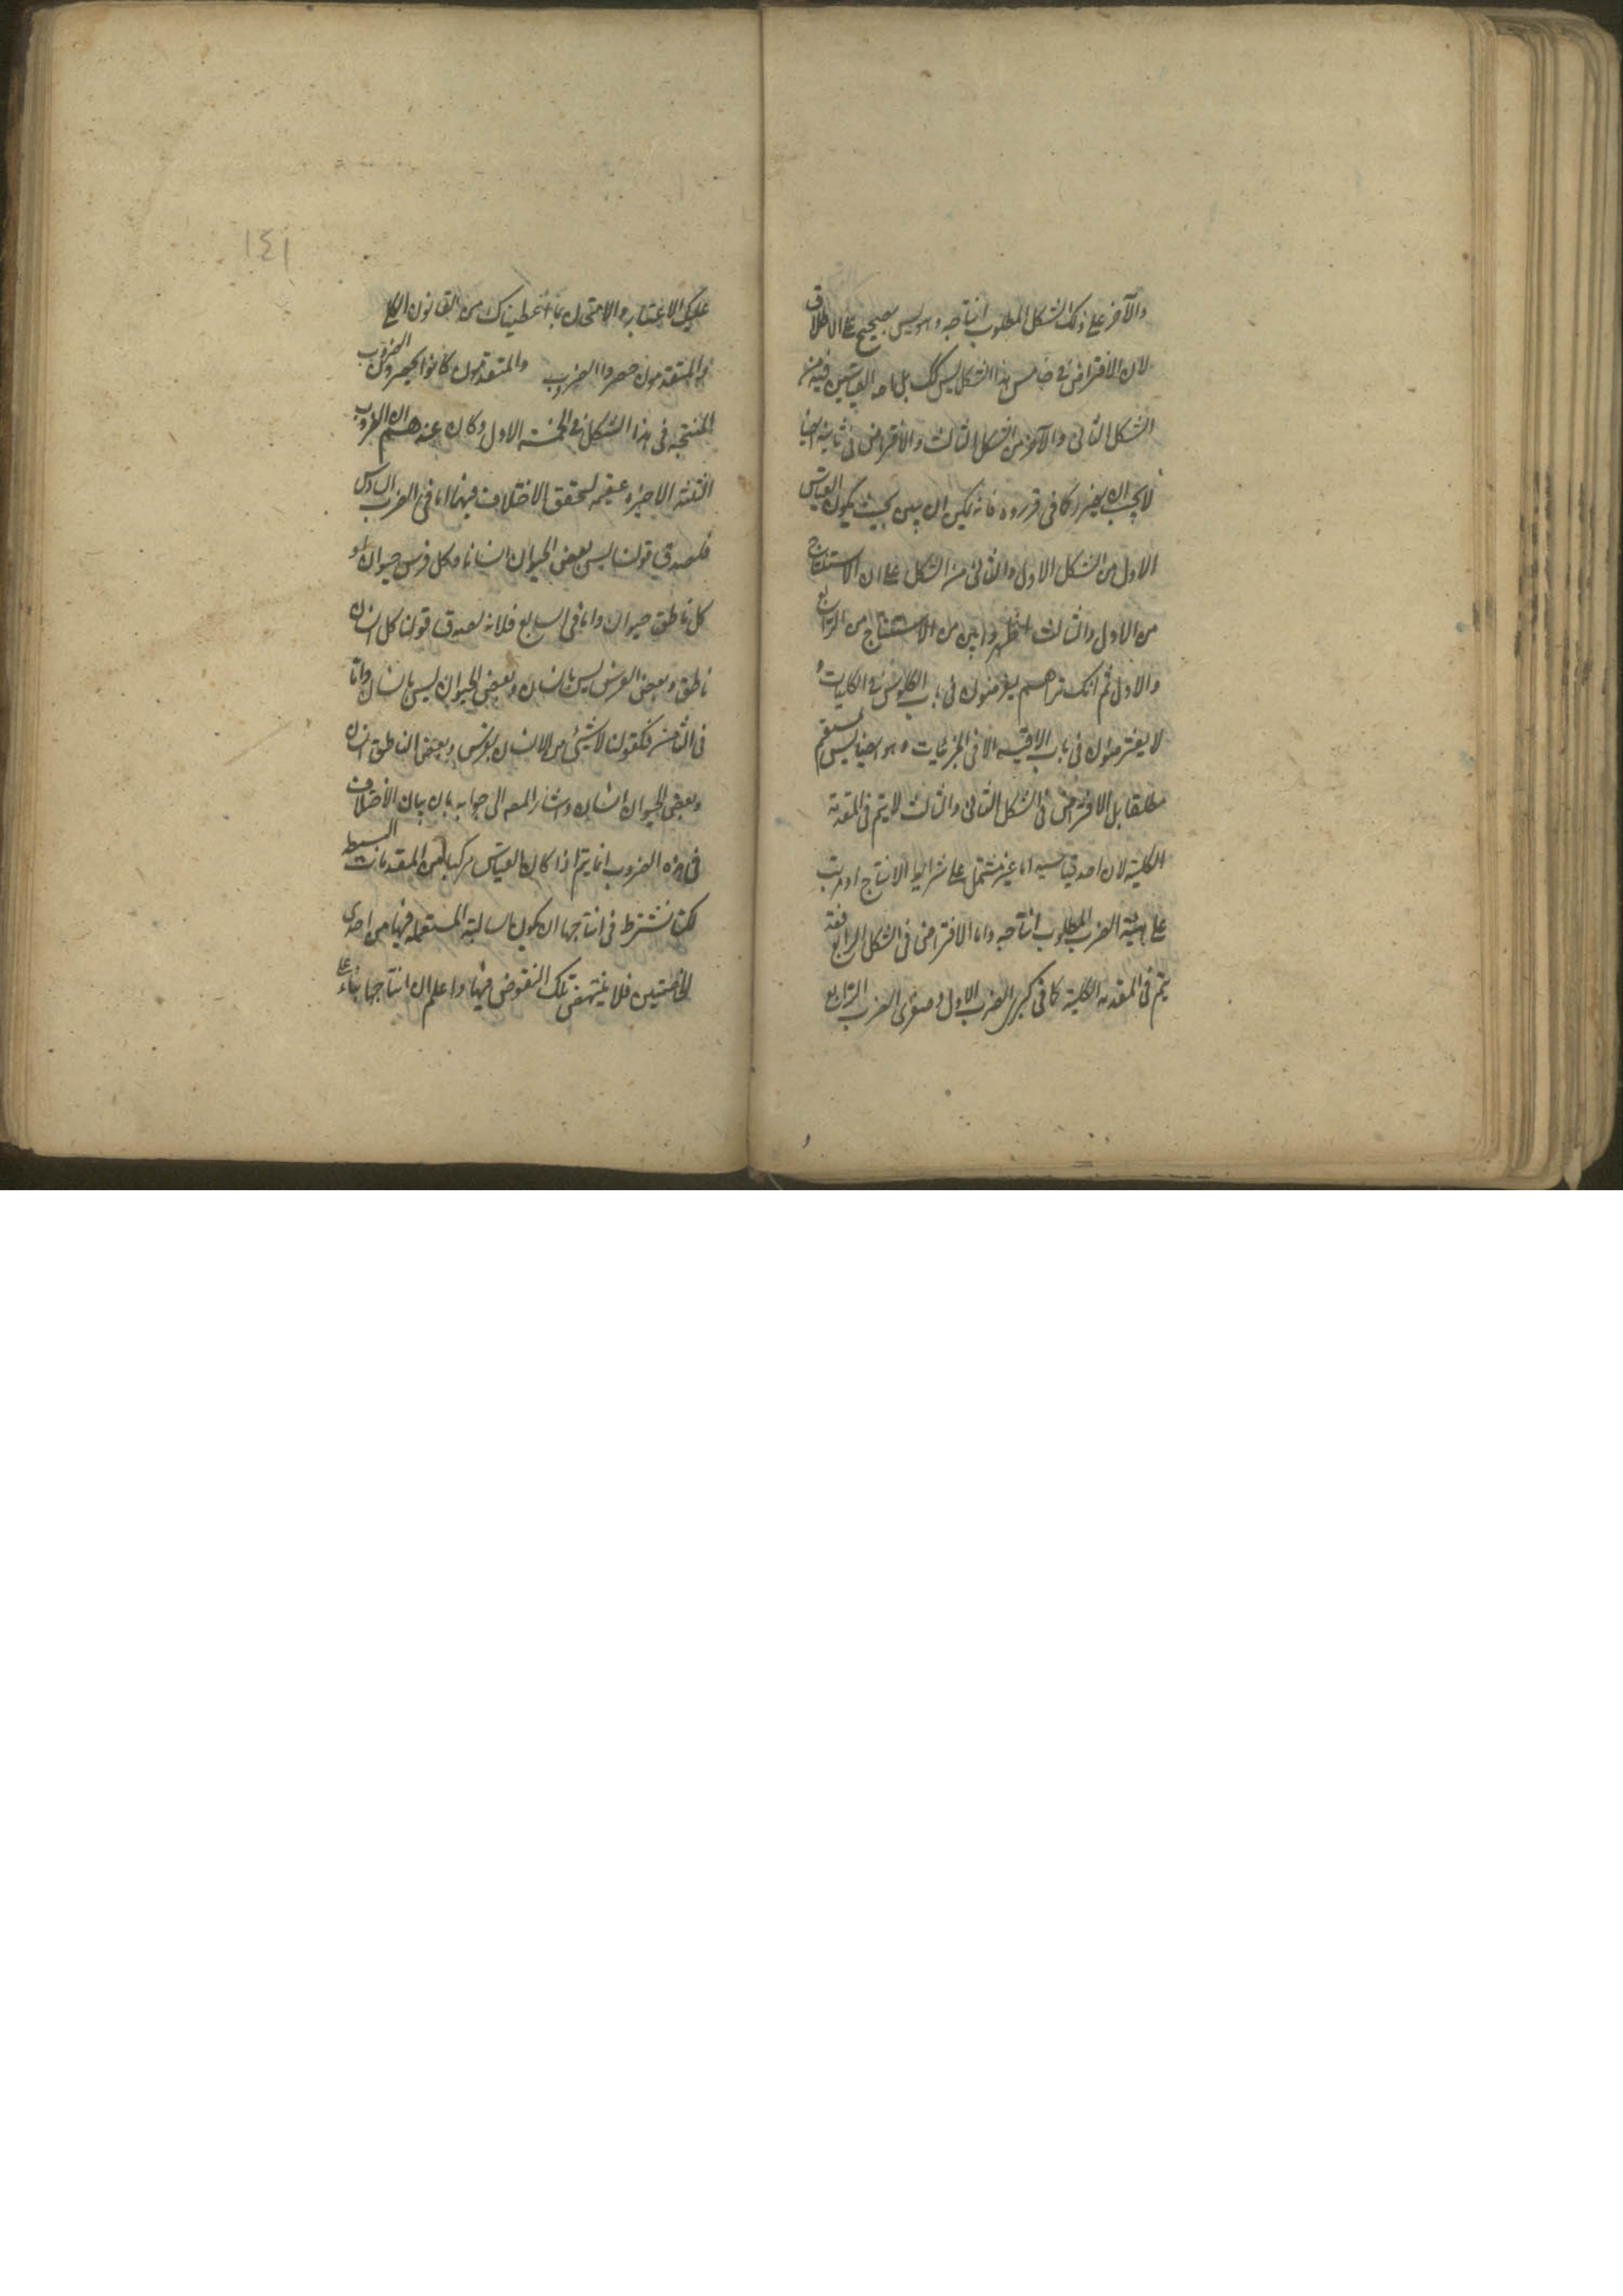 والآخر على ذلك الشكل المطلوب انتاجه وهو ليس بصحيح على الاطلاق
لان الافتراض في خامس هذا الشكل ليس كك بل احد القياسين فيه من
الشكل الثاني والآخر من الشكل الثالث والافتراض في ثانيه ايضا
لا يجب ان يكون كما في قرروه فانه يمكن ان يبين بحيث يكون القياس
الاول من الشكل الاول والثاني من الشكل على ان الاستنتاج
من الاول والثالث اظهر وابين من الاستنتاج من الرابع
والاول ثم انك تراهم يفرضون في باب العكوس في الكليات و
لا يفترضون في باب الاقيسه الا في الجزئيات وهو ايضا ليس بمستقيم
مطلقا بل الافتراض في الشكل الثاني والثالث لا يتم في المقدمة
الكلية لان احد قياسيه اما غير مشتمل على شرايط الانتاج او مرتب
على هيئة الضرب المطلوب انتاجه واما الافتراض في الشكل الرابع فقد
يتم في المقدمة الكلية كما في كبرى الضرب الاول وصغرى الضرب الرابع
١٤١
عليك الاعتبار والامتحان بما اعطيناك من القانون الكلي
والمتقدمون حصروا الضروب والمتقدمون كانوا يحصرون الضروب
المنتجه في هذا الشكل في الخمسة الاول وكان عندهم ان الضروب
الثلثة الاخيره عقيمه لتحقق الاختلاف فيها اما في الضرب السادس
فلصدق قولنا ليس بعض الحيوان انسانا وكل فرس حيوان او
كل ناطق حيوان واما في السابع فلانه يصدق قولنا كل انسان
ناطق وبعض الفرس ليس بانسان وبعض الحيوان ليس بانسان واما
في الثامن فكقولنا لا شيئ من الانسان بفرس وبعض الناطق انسان
وبعض الحيوان انسان واشار المصه الى جوابه بان بيان الاختلاف
في هذه الضروب انما يتم اذا كان القياس مركبا من المقدمات البسيطه
لكنا نشترط في انتاجها ان يكون السالبة المستعمله فيها من احدى
الخاصتين فلا ينتهض تلك النقوض فيها واعلم ان انتاجها بناء على